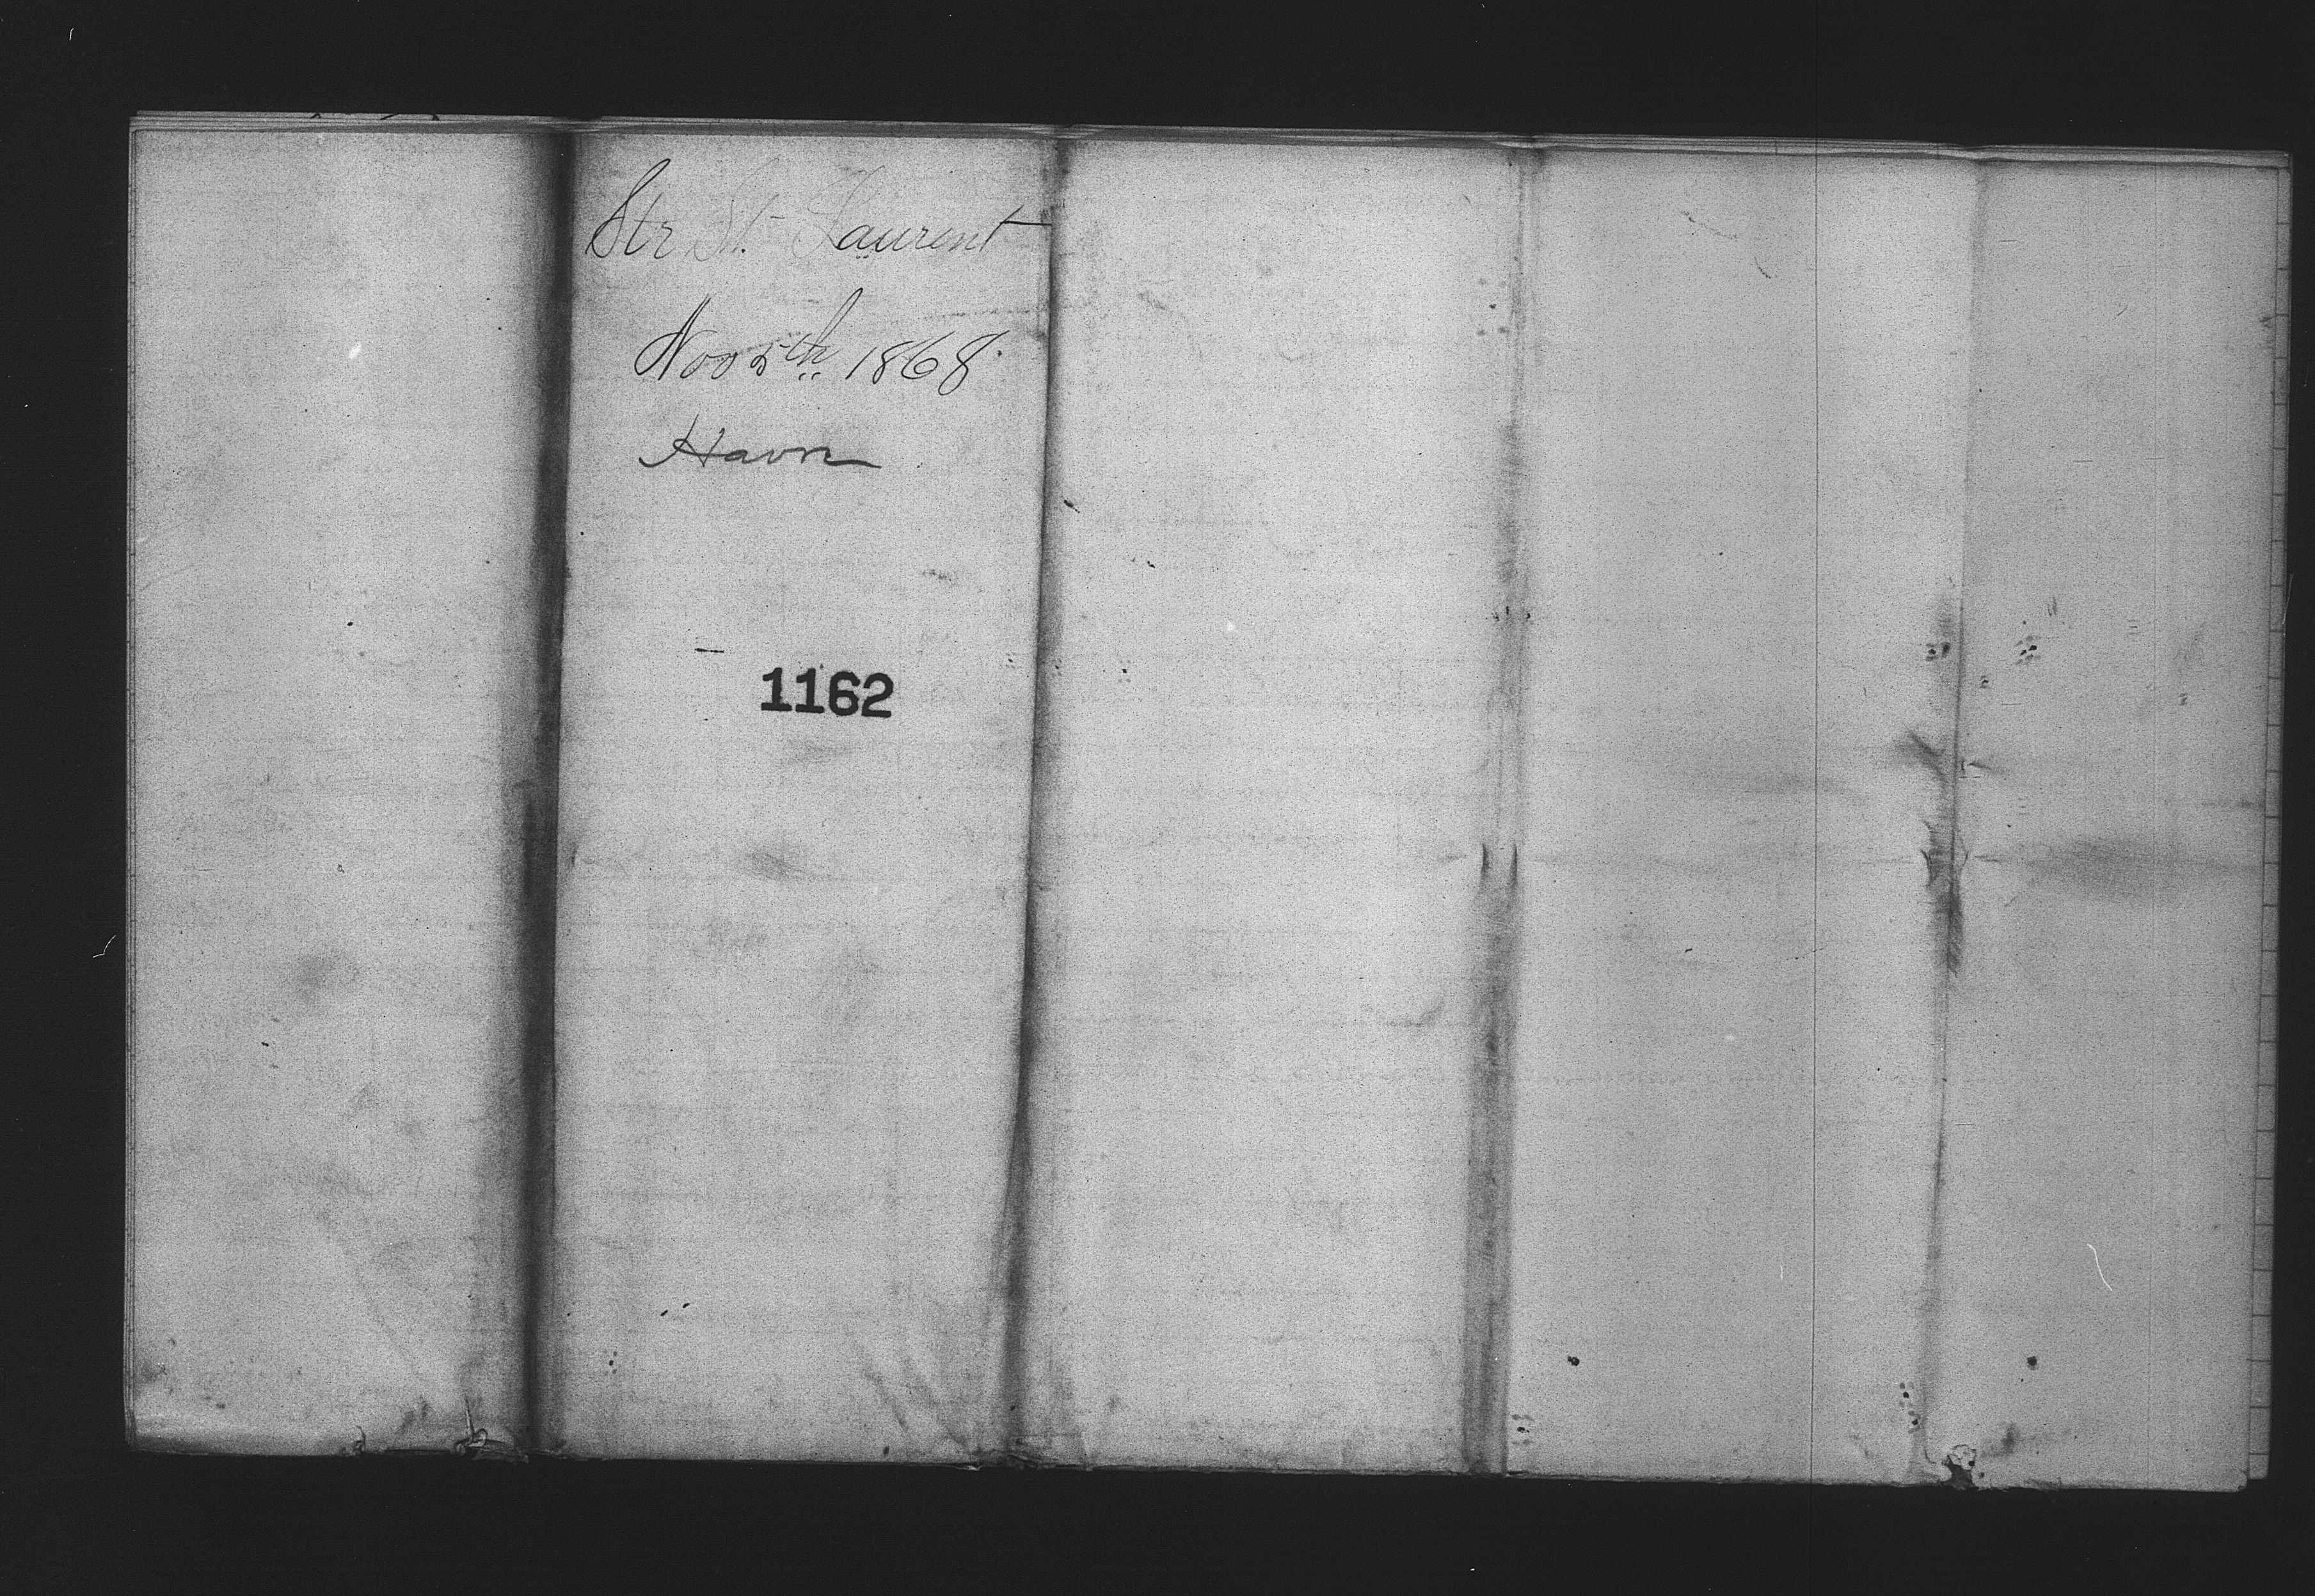 Str St. Laurent
Nov 5th 1868.
Havre
1162